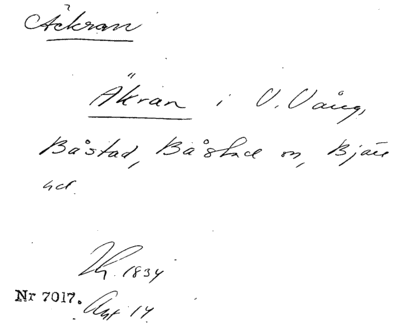 Äckran
Äkran i V. Vång,
Båstad, Båstad sn, Bjäre
hd.
1834
Nr 7017. Akt 14